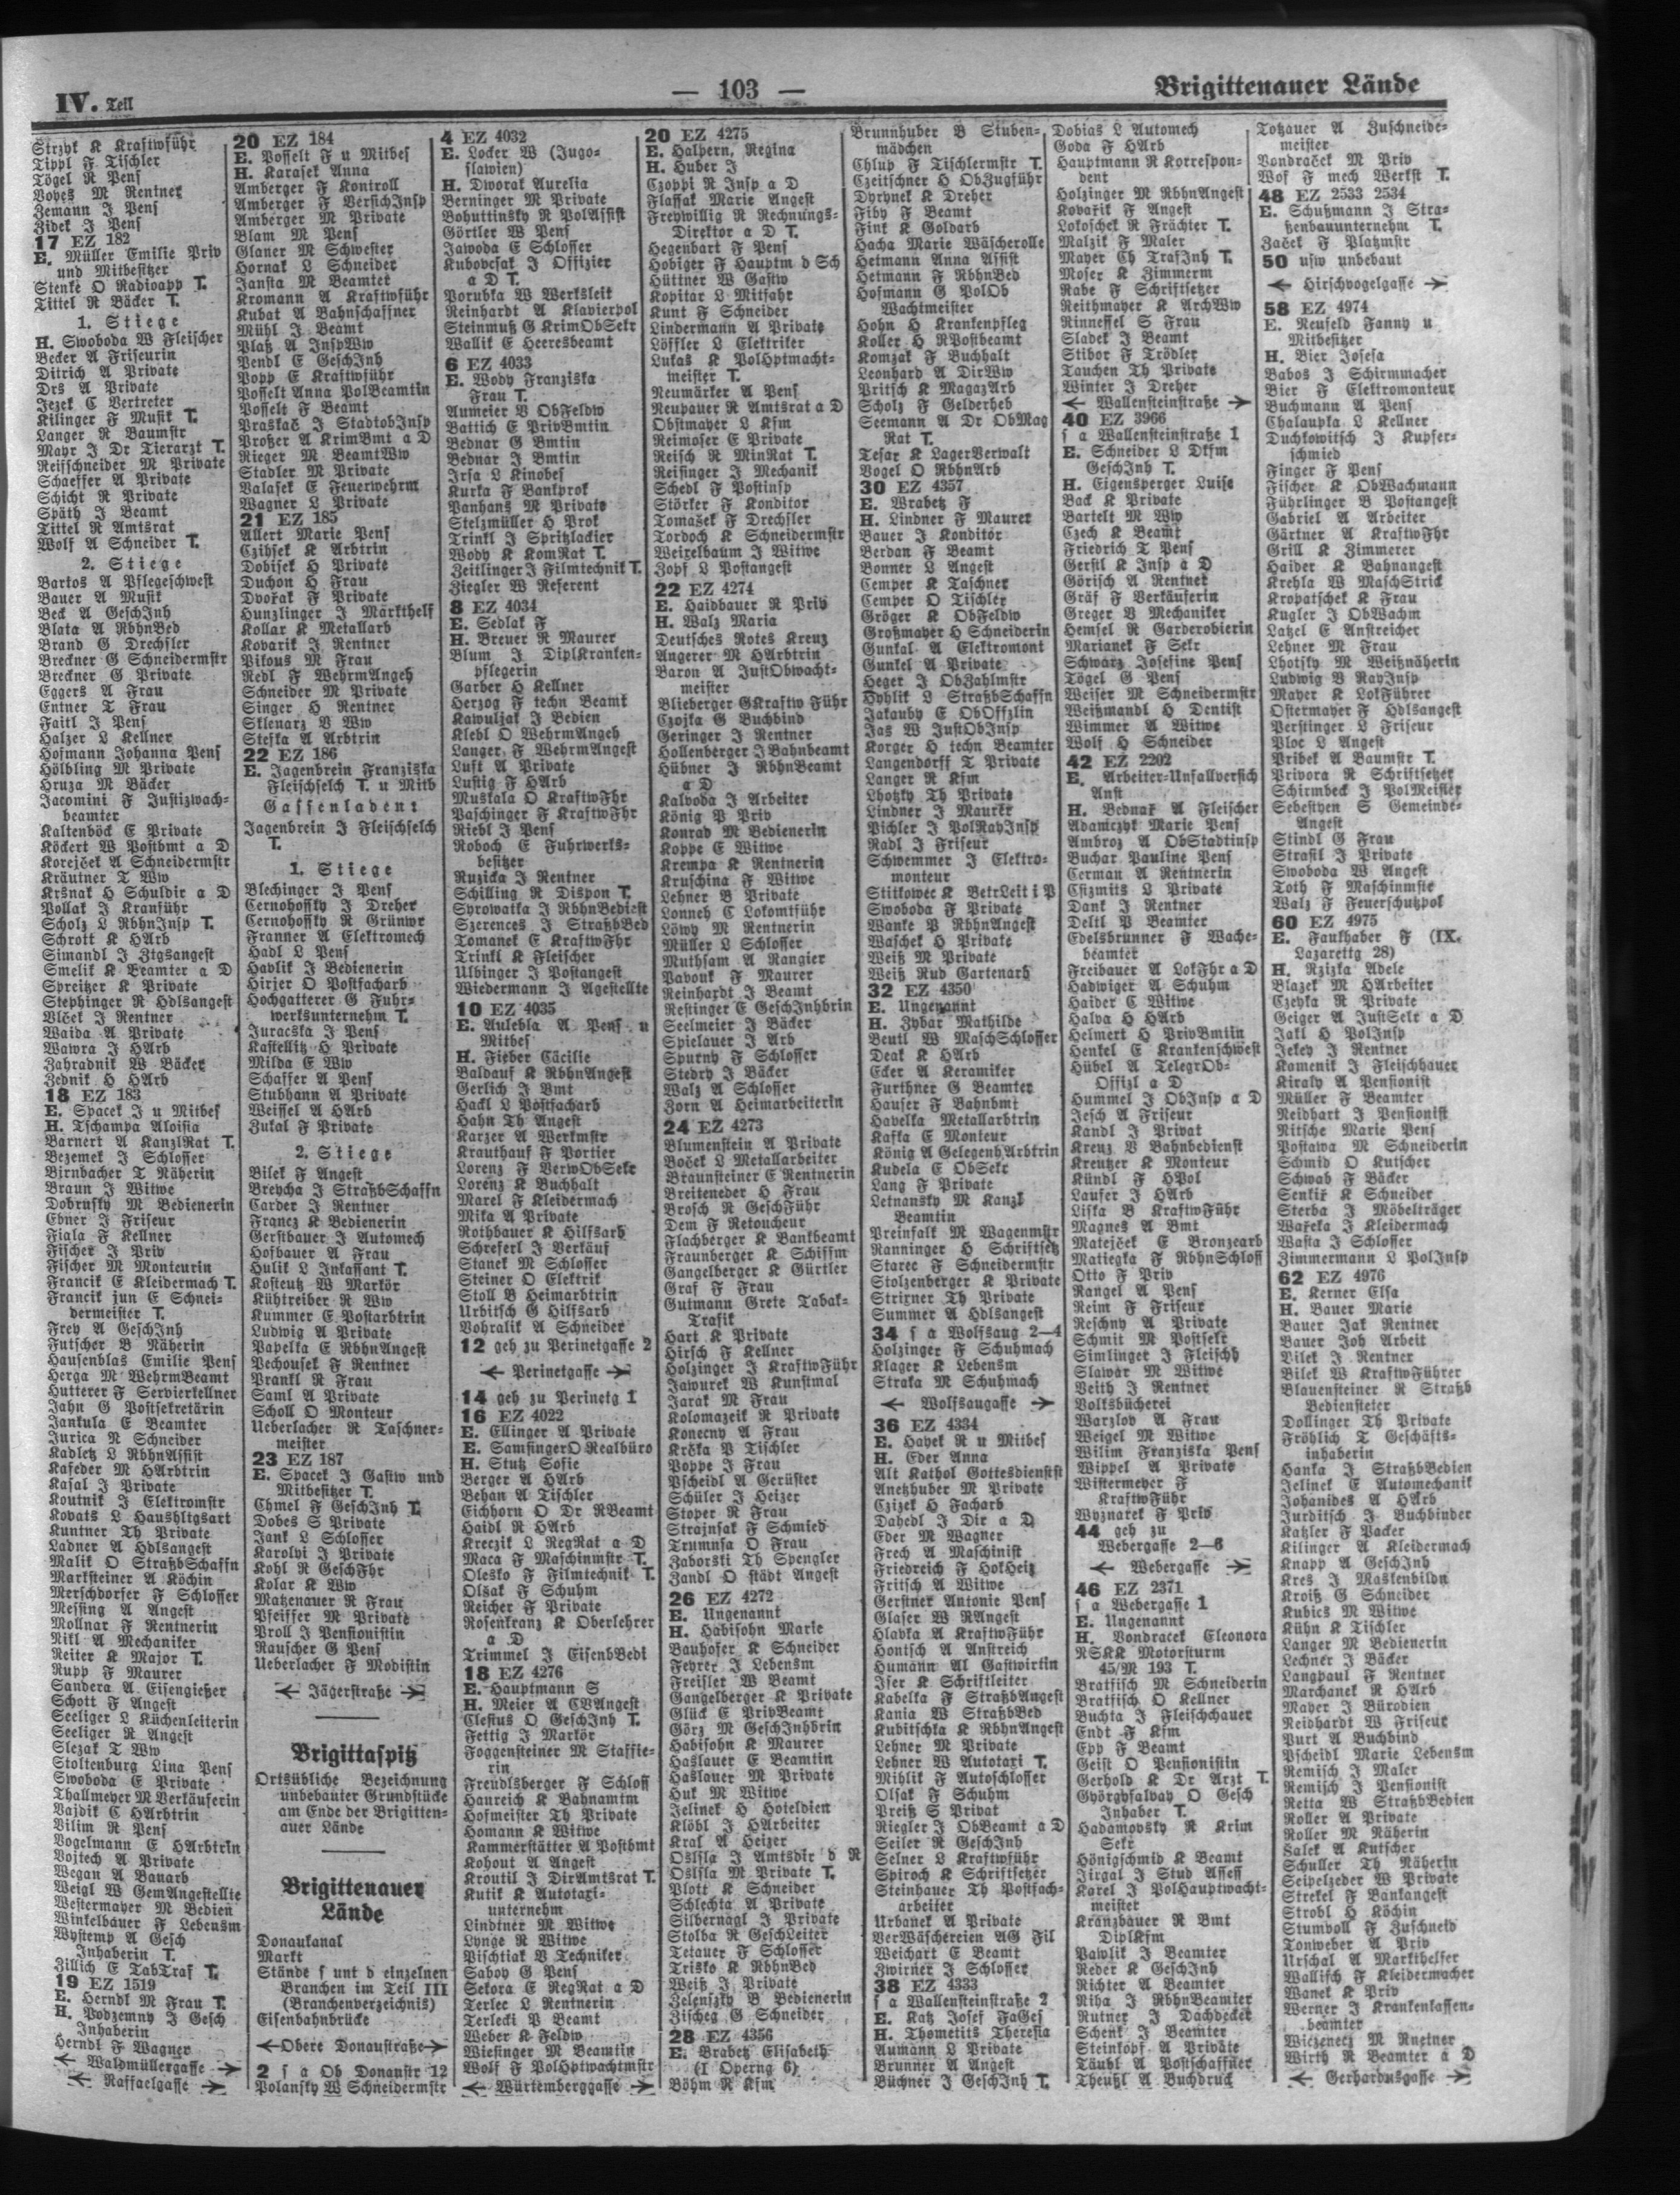 IV. Teil
— 103 —
Brigittenauer Lände
Strzyk K Kraftwführ
Tippl F Tischler
Tögel R Pens
Voyes M Rentner
Zemann J Pens
Zidek J Pens
17 EZ 182
E. Müller Emilie Priv
und Mitbesitzer
Stenke O Radioapp T.
Tittel R Bäcker T.
1. Stiege
H. Swoboda W Fleischer
Becker A Friseurin
Ditrich A Private
Drs A Private
Jezek C Vertreter
Kilinger F Musik T.
Langer R Baumstr
Mayr J Dr Tierarzt T.
Reifschneider M Private
Schaeffer A Private
Schicht R Private
Späth J Beamt
Tittel R Amtsrat
Wolf A Schneider T.
2. Stiege
Bartos A Pflegeschwest
Bauer A Musik
Beck A GeschInh
Blata A RbhnBed
Brand G Drechsler
Breckner G Schneidermstr
Breckner G Private
Eggers A Frau
Entner T Frau
Faitl J Pens
Halzer L Kellner
Hofmann Johanna Pens
Hölbling M Private
Hruza M Bäcker
Jacomini F Justizwach-
beamter
Kaltenböck E Private
Köckert W Postbmt a D
Korejček A Schneidermstr
Kräutner T Ww
Kršnak H Schuldir a D
Pollak J Kranführ
Scholz L RbhnInsp T.
Schrott K HArb
Simandl J Ztgsangest
Smelik K Beamter a D
Spreitzer K Private
Stephinger R Hdlsangest
Vlček J Rentner
Waida A Private
Wawra J HArb
Zahradnik W Bäcker
Zednik H HArb
18 EZ 183
E. Spacek J u Mitbes
H. Tschampa Aloisia
Barnert A KanzlRat T.
Bezemek J Schlosser
Birnbacher T Näherin
Braun J Witwe
Dobrusky M Bedienerin
Ebner J Friseur
Fiala F Kellner
Fischer J Priv
Fischer M Monteurin
Francik E Kleidermach T.
Francik jun E Schnei-
dermeister T.
Frey A GeschInh
Futscher B Näherin
Hausenblas Emilie Pens
Herga M WehrmBeamt
Hutterer F Servierkellner
Jahn G Postsekretärin
Jankula E Beamter
Jurica N Schneider
Kadletz L RbhnAssist
Kaseder M HArbtrin
Kasal J Private
Koutnik J Elektromstr
Kovats L Haushltgsart
Kuntner Th Private
Ladner A Hdlsangest
Malik O StraßbSchaffn
Marksteiner A Köchin
Merschdorfer F Schlosser
Messing A Angest
Mollnar F Rentnerin
Nikl A Mechaniker
Reiter K Major T.
Rupp F Maurer
Sandera A Eisengießer
Schott F Angest
Seeliger L Küchenleiterin
Seeliger R Angest
Slezak T Ww
Stoltenburg Lina Pens
Swoboda E Private
Thallmeyer M Verkäuferin
Vajdik C HArbtrin
Vilim R Pens
Vogelmann E HArbtrin
Vojtech A Private
Wegan A Bauarb
Weigl W GemAngestellte
Westermayer M Bedien
Winkelbauer F Lebensm
Wystemp A Gesch
Inhaberin T.
Zillich E TabTraf T.
19 EZ 1519
E. Herndl M Frau T.
H. Podzemny J Gesch
Inhaberin
Herndl F Wagner
← Waldmüllergasse →
← Raffaelgasse →
20 EZ 184
E. Posselt F u Mitbes
H. Karasek Anna
Amberger F Kontroll
Amberger F VersichInsp
Amberger M Private
Blam M Pens
Glaner M Schwester
Hornak L Schneider
Jansta M Beamter
Kromann A Kraftwführ
Kubat A Bahnschaffner
Mühl J Beamt
Platz A InspWw
Pendl E GeschInh
Popp E Kraftwführ
Posselt Anna PolBeamtin
Posselt F Beamt
Praskač J StadtobInsp
Proßer A KrimBmt a D
Rieger M BeamtWw
Stadler M Private
Valasek E Feuerwehrm
Wagner L Private
21 EZ 185
Allert Marie Pens
Czihsek K Arbtrin
Dobisek H Private
Duchon H Frau
Dvořak F Private
Hunzlinger J Markthelf
Kollar K Metallarb
Kovarik J Rentner
Pikous M Frau
Redl F WehrmAngeh
Schneider M Private
Singer H Rentner
Sklenarz V Ww
Stefka A Arbtrin
22 EZ 186
E. Jagenbrein Franziska
Fleischselch T. u Mitb
Gassenladen:
Jagenbrein J Fleischselch
T.
1. Stiege
Blechinger J Pens
Cernohossky J Dreher
Cernohossky R Grünwr
Franner A Elektromech
Hadl L Pens
Havlik J Bedienerin
Hirjer O Postfacharb
Hochgatterer G Fuhr-
werksunternehm T.
Juracska J Pens
Kastellitz H Private
Milda E Ww
Schaffer A Pens
Stubhann A Private
Weissel A HArb
Zukal F Private
2. Stiege
Bilek F Angest
Breycha J StraßbSchaffn
Carder J Rentner
Francz K Bedienerin
Gerstbauer J Automech
Hofbauer A Frau
Hulik L Inkassant T.
Kosteutz W Markör
Kühtreiber R Ww
Kummer E Postarbtrin
Ludwig A Private
Papelka E RbhnAngest
Pechousek F Rentner
Prankl R Frau
Saml A Private
Scholl O Monteur
Ueberlacher R Taschner-
meister
23 EZ 187
E. Spacek J Gastw und
Mitbesitzer T.
Chmel F GeschInh T.
Dobes S Private
Jank L Schlosser
Karolyi J Private
Kohl R GeschFhr
Kolar K Ww
Matzenauer R Frau
Pfeiffer M Private
Proll J Pensionistin
Rauscher G Pens
Ueberlacher F Modistin
← Jägerstraße →
Brigittaspitz
Ortsübliche Bezeichnung
unbebauter Grundstücke
am Ende der Brigitten-
auer Lände
Brigittenauer
Lände
Donaukanal
Markt
Stände s unt d einzelnen
Branchen im Teil III
(Branchenverzeichnis)
Eisenbahnbrücke
← Obere Donaustraße →
2 s a Ob Donaustr 12
Polansky W Schneidermstr
4 EZ 4032
E. Locker W (Jugo-
slawien)
H. Dworak Aurelia
Berninger M Private
Bohuttinsky R PolAssist
Görtler W Pens
Jawoda E Schlosser
Kubovcsak J Offizier
a D T.
Porubka W Werksleit
Reinhardt A Klavierpol
Steinmuß G KrimObSekr
Wallik E Heeresbeamt
6 EZ 4033
E. Wody Franziska
Frau T.
Aumeier V ObFeldw
Battich E PrivBmtin
Bednar G Bmtin
Bednar J Bmtin
Jrsa L Kinobes
Kurka F Bankprok
Panhans M Private
Stelzmüller H Prok
Trinkl J Spritzlackier
Wody K KomRat T.
Zeitlinger J Filmtechnik T.
Ziegler W Referent
8 EZ 4034
E. Sedlak F
H. Breuer R Maurer
Blum J DiplKranken-
pflegerin
Garber H Kellner
Herzog F techn Beamt
Kawuljak J Bedien
Klebl O WehrmAngeh
Langer F WehrmAngest
Luft A Private
Lustig F HArb
Muskala O KraftwFhr
Paschinger F KraftwFhr
Riebl J Pens
Roboch E Fuhrwerks-
besitzer
Ruzicka J Rentner
Schilling R Dispon T.
Syrowatka J RbhnBedienst
Szerences J StraßbBed
Tomanek E KraftwFhr
Trinkl K Fleischer
Ulbinger J Postangest
Wiedermann J Agestellte
10 EZ 4035
E. Aulebla A Pens u
Mitbes
H. Fieber Cäcilie
Baldauf K RbhnAngest
Gerlich J Bmt
Hackl L Postfacharb
Hahn Th Angest
Karzer A Werkmstr
Krauthauf F Portier
Lorenz F VerwObSekr
Lorenz K Buchhalt
Marek F Kleidermach
Mika A Private
Rothbauer K Hilfsarb
Schreferl J Verkäuf
Stanek M Schlosser
Steiner O Elektrik
Stoll B Heimarbtrin
Urbitsch G Hilfsarb
Vohralik A Schneider
12 geh zu Perinetgasse 2
← Perinetgasse →
14 geh zu Perinetg 1
16 EZ 4022
E. Ellinger A Private
E. Samsinger O Realbüro
H. Stutz Sofie
Berger A HArb
Behan A Tischler
Eichhorn O Dr RBeamt
Haidl R HArb
Kreczik L RegRat a D
Maca F Maschinmstr T.
Olesko F Filmtechnik T.
Olsak F Schuhm
Reicher F Private
Rosenkranz K Oberlehrer
a D
Trimmel J EisenbBedi
18 EZ 4276
E. Hauptmann S
H. Meier A CVAngest
Clessius O GeschInh T.
Fettig J Markör
Foggensteiner M Staffie-
rin
Freudlsberger F Schloss
Haureich K Bahnamtm
Hofmeister Th Private
Homann K Witwe
Kammerstätter A Postbmt
Kohout A Angest
Kroutil J DirAmtsrat T.
Kutik K Autotaxi-
unternehm
Lindtner M Witwe
Lynge R Witwe
Pischtiak V Techniker
Saboy G Pens
Sekora E RegRat a D
Terlec L Rentnerin
Terlecki P Beamt
Weber K Feldw
Wiesinger M Beamtin
Wolf F PolHptwachtmstr
← Württemberggasse →
20 EZ 4275
E. Halpern, Regina
H. Huber J
Czoppi R Insp a D
Flassak Marie Angest
Freywillig R Rechnungs-
Direktor a D T.
Hegenbart F Pens
Hobiger F Hauptm d Sch
Hüttner W Gastw
Kopitar L Mitfahr
Kunt F Schneider
Lindermann A Private
Löffler L Elektriker
Lukas K PolHptmacht-
meister T.
Neumärker A Pens
Neubauer R Amtsrat a D
Obstmayer L Kfm
Reimoser E Private
Reisch R MinRat T.
Reisinger J Mechanik
Schedl F Postinsp
Störker F Konditor
Tomašek F Drechsler
Tordoch K Schneidermstr
Weixelbaum J Witwe
Zopf L Postangest
22 EZ 4274
E. Haidbauer R Priv
H. Walz Maria
Deutsches Rotes Kreuz
Angerer M HArbtrin
Baron A JustObwacht-
meister
Blieberger G Kraftw Führ
Czojka G Buchbind
Geringer J Rentner
Hollenberger J Bahnbeamt
Hübner J RbhnBeamt
a D
Kalvoda J Arbeiter
König P Priv
Konrad M Bedienerin
Koppe E Witwe
Krempa K Rentnerin
Kruschina F Witwe
Lehner B Private
Lonneh C Lokomtführ
Löwy M Rentnerin
Müller L Schlosser
Muthsam A Rangier
Pavonk F Maurer
Reinhardt J Beamt
Restinger E GeschInhbrin
Seelmeier J Bäcker
Spielauer J Arb
Spurny F Schlosser
Stedry J Bäcker
Walz A Schlosser
Zorn A Heimarbeiterin
24 EZ 4273
Blumenstein A Private
Boček L Metallarbeiter
Braunsteiner E Rentnerin
Breiteneder H Frau
Brosch R GeschFühr
Dem F Retoucheur
Flachberger K Bankbeamt
Fraunberger K Schiffm
Gangelberger K Gürtler
Graf F Frau
Gutmann Grete Tabak-
Trafik
Hart K Private
Hirsch F Kellner
Holzinger J KraftwFühr
Jawurek W Kunstmal
Jarak M Frau
Kolomazeik R Private
Konecny A Frau
Krčka V Tischler
Poppe J Frau
Pscheidl A Gerüster
Schüler J Heizer
Stoper R Frau
Strajnsak F Schmied
Trumnsa O Frau
Zaborski Th Spengler
Zandl O städt Angest
26 EZ 4272
E. Ungenannt
H. Habisohn Marie
Bauhofer K Schneider
Feyrer J Lebensm
Freisler W Beamt
Gangelberger K Private
Glück E PrivBeamt
Görz M GeschInhbrin
Habisohn K Maurer
Haslauer E Beamtin
Haslauer M Private
Huk M Witwe
Jelinek H Hoteldien
Klöbl J HArbeiter
Kral A Heizer
Oslisla J Amtsdir d R
Oslisla M Private T.
Plott K Schneider
Schlechta A Private
Silbernagl J Private
Stolba R GeschLeiter
Tetauer F Schlosser
Trisko K RbhnBed
Weiß J Private
Zelenszky B Bedienerin
Zischeg G Schneider
28 EZ 4356
E. Brabetz Elisabeth
(I Operng 6)
Böhm R Kfm
Brunnhuber B Stuben-
mädchen
Chlup F Tischlermstr T.
Czeitschner H ObZugführ
Dyrhnek K Dreher
Fiby F Beamt
Fink K Goldarb
Hacha Marie Wäscherolle
Hetmann Anna Assist
Hetmann F RbhnBed
Hofmann G PolOb
Wachtmeister
Hohn H Krankenpfleg
Koller H RPostbeamt
Komzak F Buchhalt
Leonhard A DirWw
Pritsch K MagazArb
Scholz F Gelderheb
Seemann A Dr ObMag
Rat T.
Tesar K LagerVerwalt
Vogel O RbhnArb
30 EZ 4357
E. Wrabetz F
H. Lindner F Maurer
Bauer J Konditor
Berdan F Beamt
Bonner L Angest
Cemper K Taschner
Cemper O Tischler
Gröger K ObFeldw
Großmayer H Schneiderin
Gunkal A Elektromont
Gunkel A Private
Heger J ObZahlmstr
Hyhlik L StraßbSchaffn
Jakauby E ObOffzlin
Jas W JustObInsp
Korger H techn Beamter
Langendorff T Private
Langer R Kfm
Lhotzky Th Private
Lindner J Maurer
Pichler J PolRayInsp
Radl J Friseur
Schwemmer J Elektro-
monteur
Stitkowec K BetrLeit i P
Swoboda F Private
Wanke P RbhnAngest
Waschek H Private
Weiß M Private
Weiß Rud Gartenarb
32 EZ 4350
E. Ungenannt
H. Zybar Mathilde
Beutl W MaschSchlosser
Deak K HArb
Ecker A Keramiker
Furthner G Beamter
Hauser F Bahnbmt
Havelka Metallarbtrin
Kafka E Monteur
König A Gelegenh Arbtrin
Kudela E ObSekr
Lang F Private
Letnansky M Kanzl
Beamtin
Preinfalk M Wagenmstr
Ranninger H Schriftsetz
Starec F Schneidermstr
Stolzenberger K Private
Strixner Th Private
Summer A Hdlsangest
34 s a Wolfsaug 2—4
Holzinger F Schuhmach
Klager K Lebensm
Straka M Schuhmach
← Wolfsaugasse →
36 EZ 4334
E. Hayek R u Mitbes
H. Eder Anna
Alt Kathol Gottesdienstst
Anetzhuber M Private
Czizek H Facharb
Dahedl J Dir a D
Eder M Wagner
Frech A Maschinist
Friedreich F HokHeiz
Fritsch A Witwe
Gerstner Antonie Pens
Glaser W RAngest
Hlavka A KraftwFühr
Hontsch A Anstreich
Humann Al Gastwirtin
Iser K Schriftleiter
Kabelka F StraßbAngest
Kania W StraßbBed
Kubitschka K RbhnAngest
Lehner M Private
Lehner W Autotaxi T.
Mihlik F Autoschlosser
Olsak F Schuhm
Preiß S Privat
Riegler J ObBeamt a D
Seiler R GeschInh
Selner L Kraftwführ
Spiroch K Schriftsetzer
Steinhauer Th Postfach-
arbeiter
Urbanek A Private
VerWäschereien AG Fil
Weichart E Beamt
Zwirner J Schlosser
38 EZ 4333
s a Wallensteinstraße 2
E. Katz Josef FaGes
H. Thometits Theresia
Aumann L Private
Brunner A Angest
Büchner J GeschInh T.
Dobias L Automech
Goda F HArb
Hauptmann R Korrespon-
dent
Holzinger M RbhnAngest
Kovařik F Angest
Lokoschek R Frächter T.
Malzik F Maler
Mayer Ch TrafInh T.
Moser K Zimmerm
Rabe F Schriftsetzer
Reithmayer K ArchWw
Rinnessel S Frau
Sladek J Beamt
Stibor F Trödler
Tauchen Th Private
Winter J Dreher
← Wallensteinstraße →
40 EZ 3966
s a Wallensteinstraße 1
E. Schneider L Dkfm
GeschInh T.
H. Eigensperger Luise
Back K Private
Bartelt M Ww
Czech K Beamt
Friedrich T Pens
Gerstl K Insp a D
Görisch A Rentner
Gräf F Verkäuferin
Greger V Mechaniker
Hemsel R Garderobierin
Marianek F Sekr
Schwarz Josefine Pens
Tögel G Pens
Weiser M Schneidermstr
Weißmandl H Dentist
Wimmer A Witwe
Wolf H Schneider
42 EZ 2202
E. Arbeiter-Unfallversich
Anst
H. Bednař A Fleischer
Adamczyk Marie Pens
Ambroz A ObStadtinsp
Buchar Pauline Pens
Cerman A Rentnerin
Csizmits L Private
Dank J Rentner
Deltl P Beamter
Edelsbrunner F Wache-
beamter
Freibauer A LokFhr a D
Hadwiger A Schuhm
Haider C Witwe
Halva H HArb
Helmert H PrivBmtin
Henkel E Krankenschwest
Hübel A TelegrOb-
Offizl a D
Hummel J ObInsp a D
Jesch A Friseur
Kandl J Privat
Kreuz V Bahnbedienst
Kreutzer K Monteur
Kündl F HPol
Laufer J HArb
Liska B KraftwFühr
Magnes A Bmt
Matejček E Bronzearb
Matiegka F RbhnSchloss
Otto F Priv
Rangel A Pens
Reim F Friseur
Reschny A Private
Schmit M Postsekr
Simlinger J Fleischh
Slawar M Witwe
Veith J Rentner
Volksbücherei
Warzlov A Frau
Weigel M Witwe
Wilim Franziska Pens
Wippel A Private
Wistermeyer F
KraftwFühr
Wyznarek F Priv
44 geh zu
Webergasse 2—6
← Webergasse →
46 EZ 2371
s a Webergasse 1
E. Ungenannt
H. Vondracek Eleonora
NSKK Motorsturm
45/M 193 T.
Bratfisch M Schneiderin
Bratfisch O Kellner
Buchta J Fleischhauer
Endt F Kfm
Epp F Beamt
Geist O Pensionistin
Gerhold K Dr Arzt T.
Györgyfalvay O Gesch
Inhaber T.
Hadamovsky R Krim
Sekr
Hönigschmid K Beamt
Jirgal J Stud Assess
Karel J PolHauptwacht-
meister
Kranzbauer R Bmt
DiplKfm
Pawlik J Beamter
Reder K GeschInh
Richter A Beamter
Riha J RbhnBeamter
Rutner J Dachdecker
Schenk J Beamter
Steinkopf A Private
Täubl A Postschaffner
Theußl A Buchdruck
Totzauer A Zuschneide-
meister
Vondraček M Priv
Wof F mech Werkst T.
48 EZ 2533 2534
E. Schußmann J Stra-
ßenbauunternehm T.
Začek F Platzmstr
50 usw unbebaut
← Hirschvogelgasse →
58 EZ 4974
E. Neufeld Fanny u
Mitbesitzer
H. Bier Josefa
Babos J Schirmmacher
Bier F Elektromonteur
Buchmann A Pens
Chalaupka L Kellner
Duchkowitsch J Kupfer-
schmied
Finger F Pens
Fischer K ObWachmann
Führlinger B Postangest
Gabriel A Arbeiter
Gärtner A KraftwFhr
Grill K Zimmerer
Haider K Bahnangest
Krehla W MaschStrick
Kropatschek K Frau
Kugler J ObWachm
Latzel E Anstreicher
Lehner M Frau
Lhotsky M Weißnäherin
Ludwig V RayInsp
Mayer K LokFührer
Ostermayer F Hdlsangest
Perstinger L Friseur
Ploc L Angest
Pribek A Baumstr T.
Privora R Schriftsetzer
Schirmbeck J PolMeister
Sebestyen S Gemeinde-
Angest
Stindl G Frau
Strasil J Private
Swoboda W Angest
Toth F Maschinmstr
Walz F Feuerschutzpol
60 EZ 4975
E. Faulhaber F (IX.
Lazarettg 28)
H. Rzizka Adele
Blazek M HArbeiter
Czeyka R Private
Geiger A JustSekr a D
Jakl H PolInsp
Jekey J Rentner
Kamenik J Fleischhauer
Kiraly A Pensionist
Müller F Beamter
Neidhart J Pensionist
Nitsche Marie Pens
Postawa M Schneiderin
Schmid O Kutscher
Schwab F Bäcker
Senkiř K Schneider
Sterba J Möbelträger
Wařeka J Kleidermach
Wasta J Schlosser
Zimmermann L PolInsp
62 EZ 4976
E. Kerner Elsa
H. Bauer Marie
Bauer Jak Rentner
Bauer Joh Arbeit
Bilek J Rentner
Bilek W KraftwFührer
Blauensteiner R Straßb
Bediensteter
Dollinger Th Private
Fröhlich T Geschäfts-
inhaberin
Hanka J StraßbBedien
Jelinek E Automechanik
Johanides A HArb
Jurditsch J Buchbinder
Katzler F Packer
Kilinger A Kleidermach
Knapp A GeschInh
Kres J Maskenbildn
Kroiß G Schneider
Kubics M Witwe
Kühn K Tischler
Langer M Bedienerin
Lechner J Bäcker
Langpaul F Rentner
Marchanek R HArb
Mayer J Bürodien
Neidhardt W Friseur
Purt A Buchbind
Pscheidl Marie Lebensm
Remisch J Maler
Remisch J Pensionist
Retta W StraßbBedien
Roller A Private
Roller M Näherin
Salek A Kutscher
Schuller Th Näherin
Seipelzeder W Private
Strekel F Bankangest
Strobl H Köchin
Stumvoll F Zuschneid
Tonweber A Priv
Urschal A Markthelfer
Wallisch F Kleidermacher
Wanek K Priv
Werner J Krankenkassen-
beamter
Wiezenecz M Rnetner
Wirth R Beamter a D
← Gerhardusgasse →